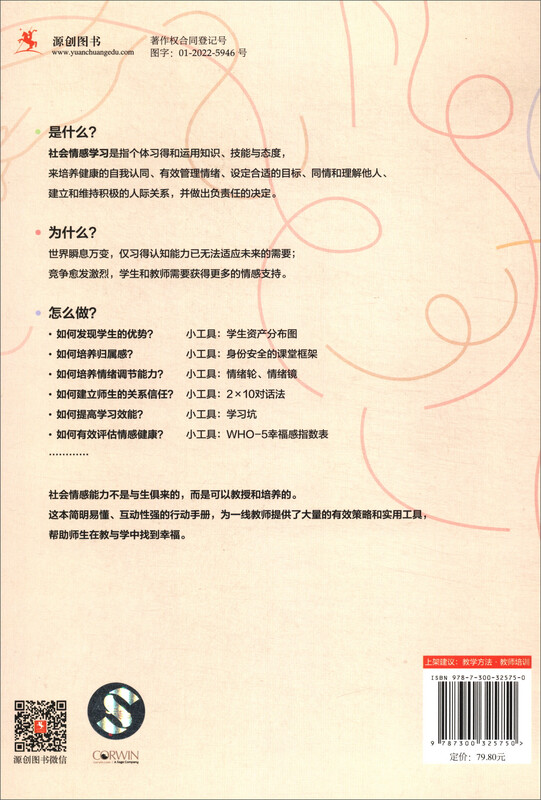 源创图书
www.yuanchuangedu.com
著作权合同登记号
图字：01-2022-5946 号
是什么？
社会情感学习是指个体习得和运用知识、技能与态度，
来培养健康的自我认同、有效管理情绪、设定合适的目标、同情和理解他人、
建立和维持积极的人际关系，并做出负责任的决定。
为什么？
世界瞬息万变，仅习得认知能力已无法适应未来的需要；
竞争愈发激烈，学生和教师需要获得更多的情感支持。
怎么做？
·如何发现学生的优势？ 小工具：学生资产分布图
·如何培养归属感？ 小工具：身份安全的课堂框架
·如何培养情绪调节能力？ 小工具：情绪轮、情绪镜
·如何建立师生的关系信任？ 小工具：2×10对话法
·如何提高学习效能？ 小工具：学习坑
·如何有效评估情感健康？ 小工具：WHO-5幸福感指数表
…………
社会情感能力不是与生俱来的，而是可以教授和培养的。
这本简明易懂、互动性强的行动手册，为一线教师提供了大量的有效策略和实用工具，
帮助师生在教与学中找到幸福。
上架建议：教学方法·教师培训
ISBN 978-7-300-32575-0
9 787300 325750>
定价：79.80元
源创图书微信
S
CORWIN
A Sage Company